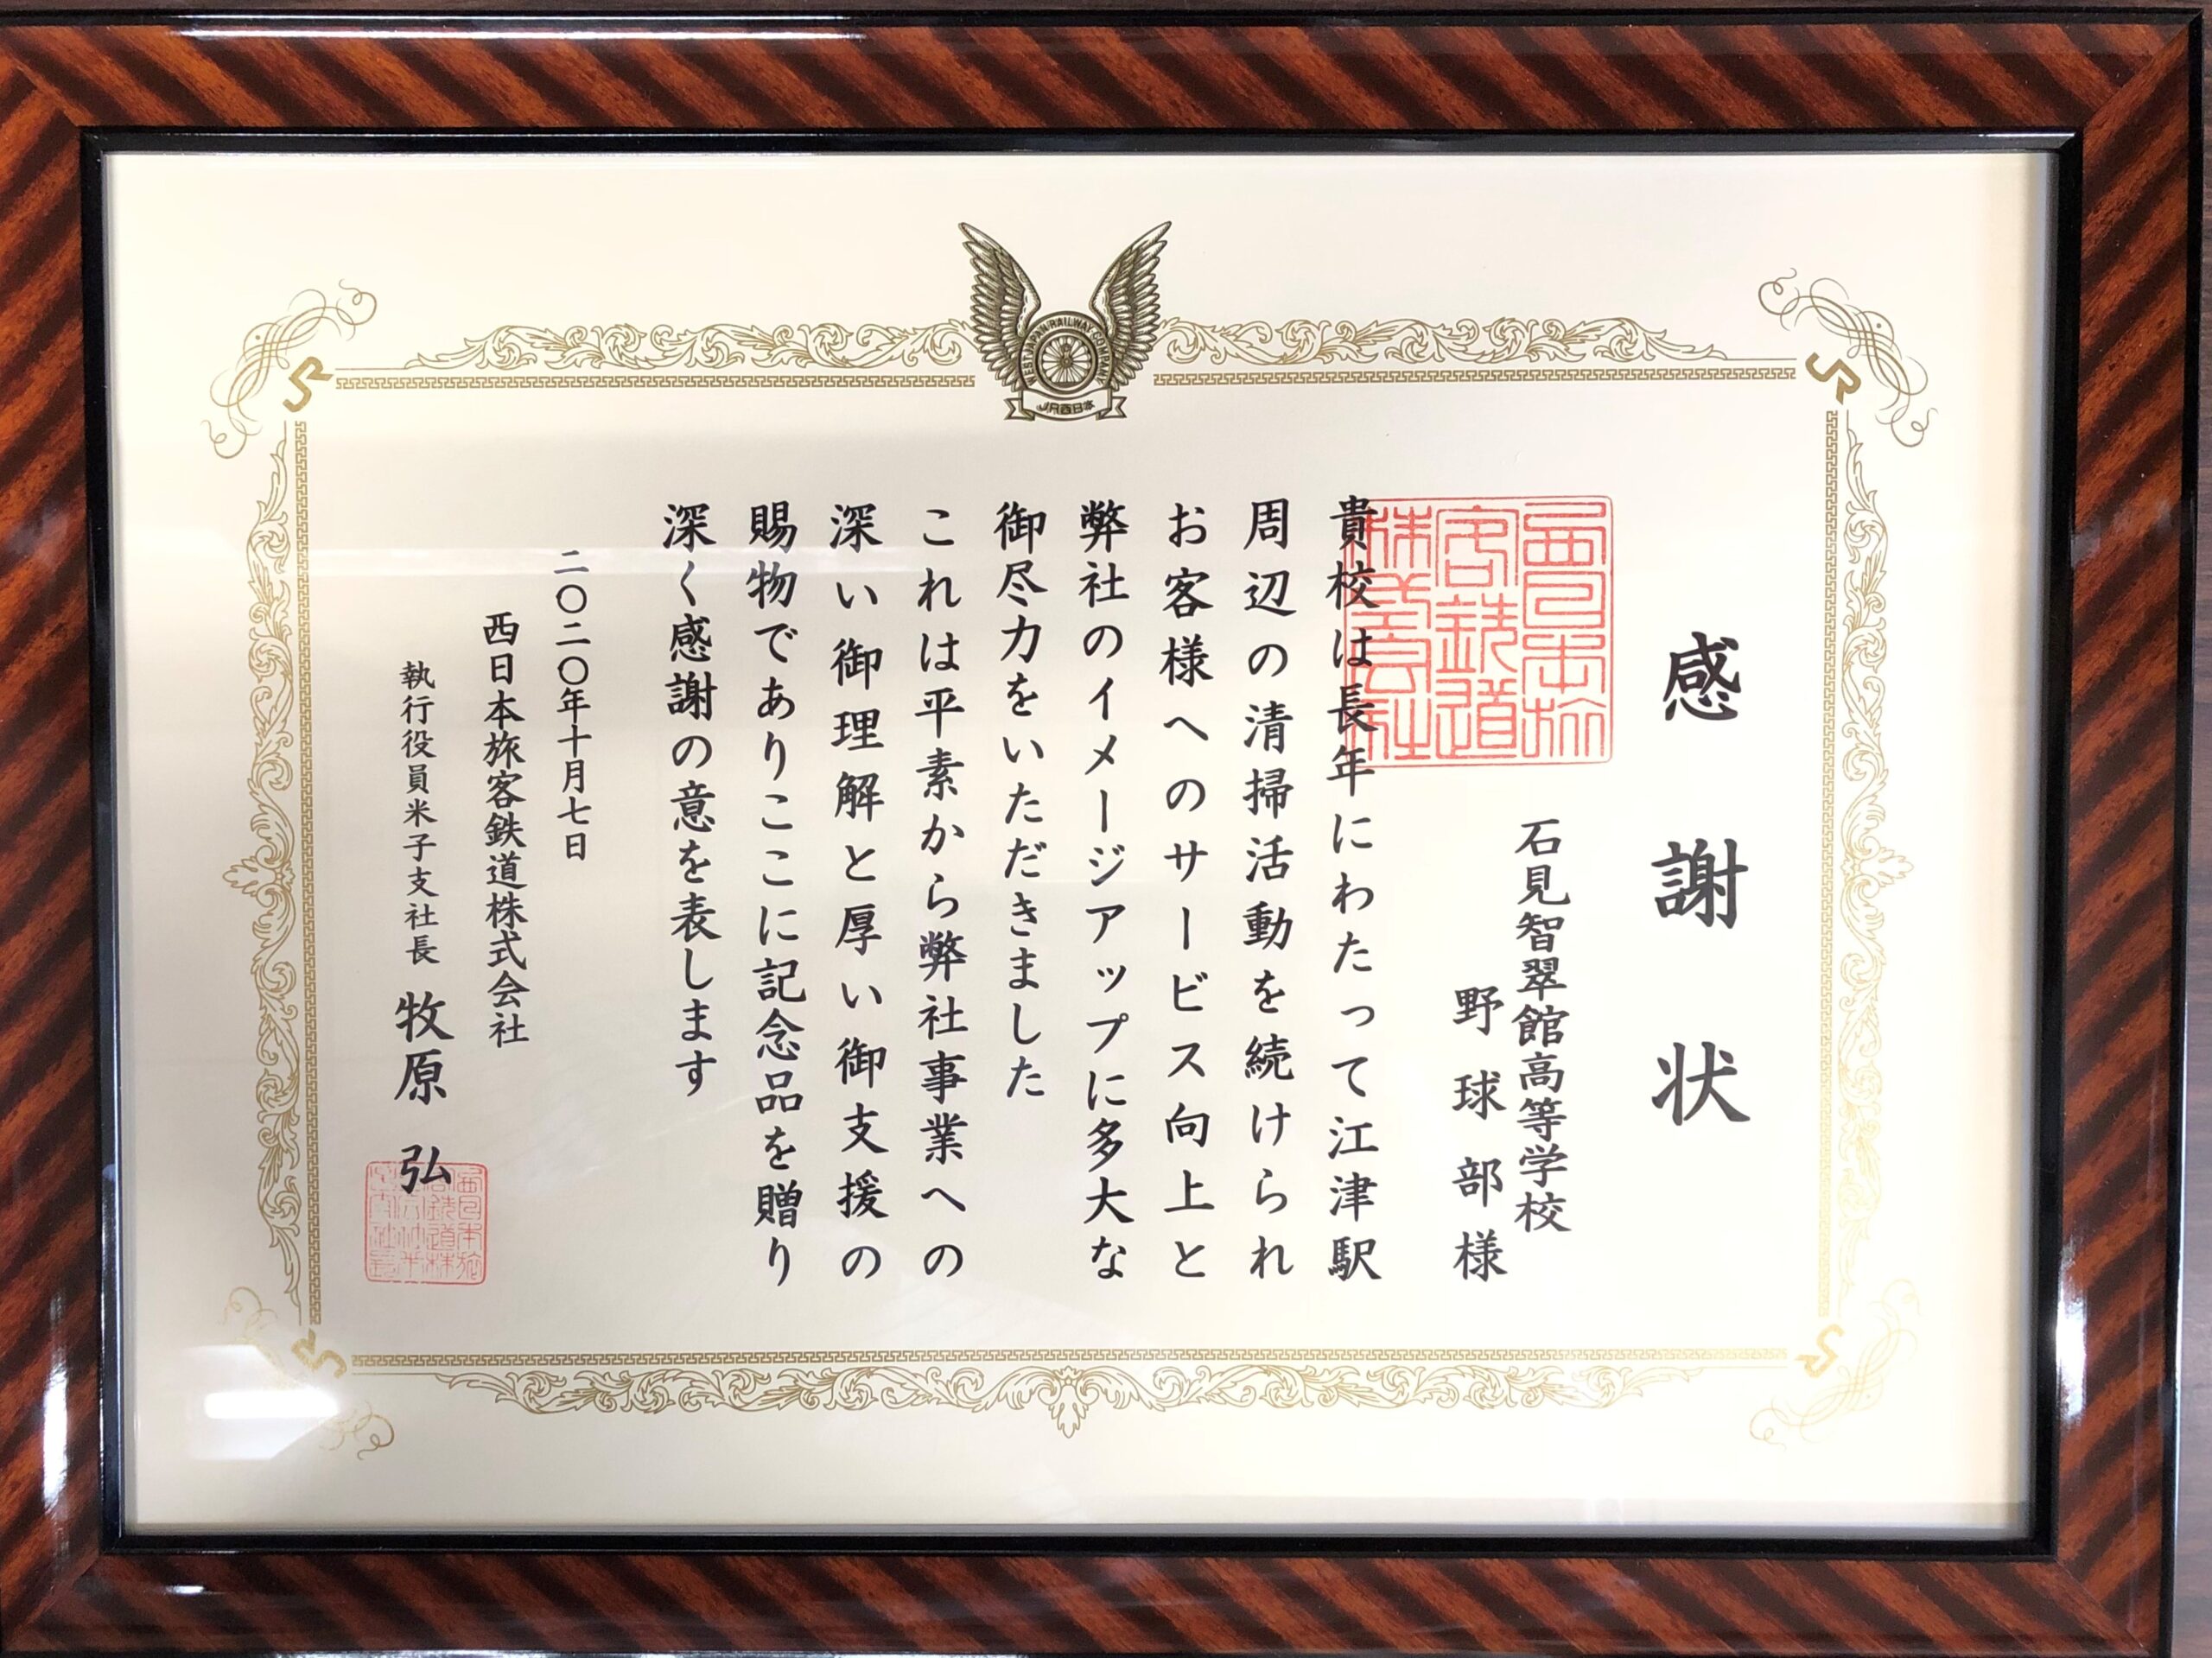 WEST JAPAN RAILWAY COMPANY
JR西日本
感謝状
石見智翠館高等学校
野球部様
貴校は長年にわたって江津駅
周辺の清掃活動を続けられ
お客様へのサービス向上と
弊社のイメージアップに多大な
御尽力をいただきました
これは平素から弊社事業への
深い御理解と厚い御支援の
賜物でありここに記念品を贈り
深く感謝の意を表します
二〇二〇年十月七日
西日本旅客鉄道株式会社
執行役員米子支社長 牧原 弘
西日本旅
客鉄道
株式会社
JR
JR